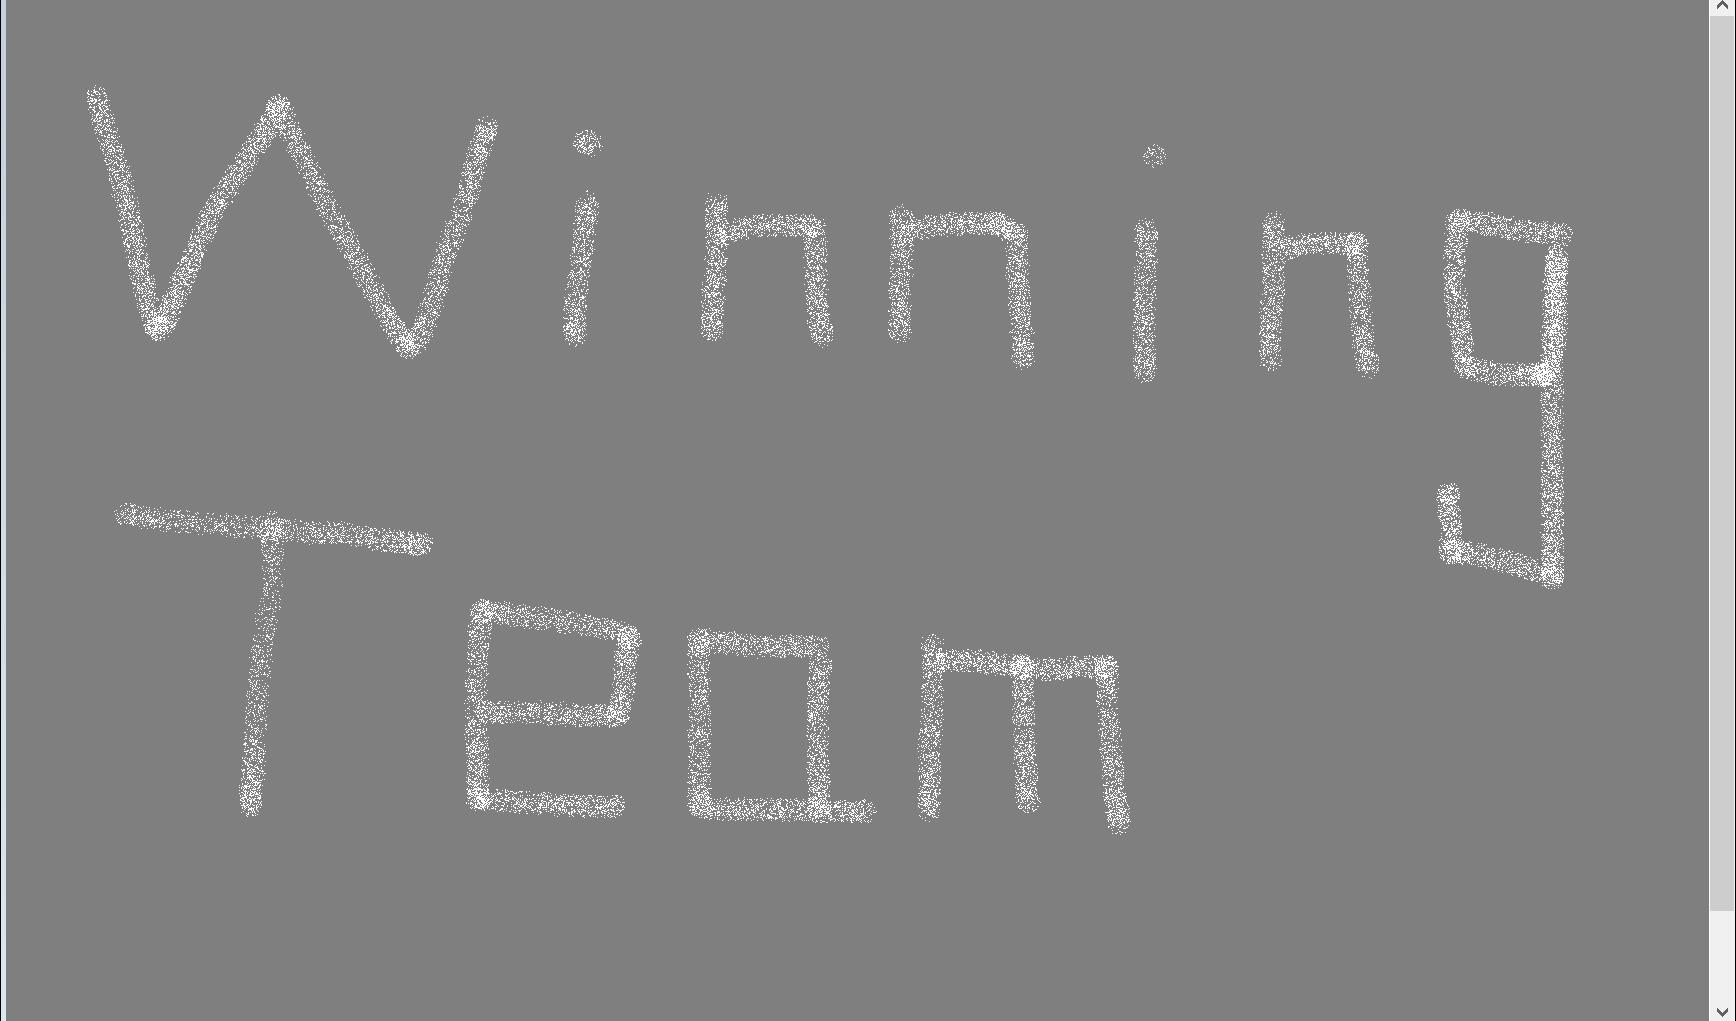 Winning
Team